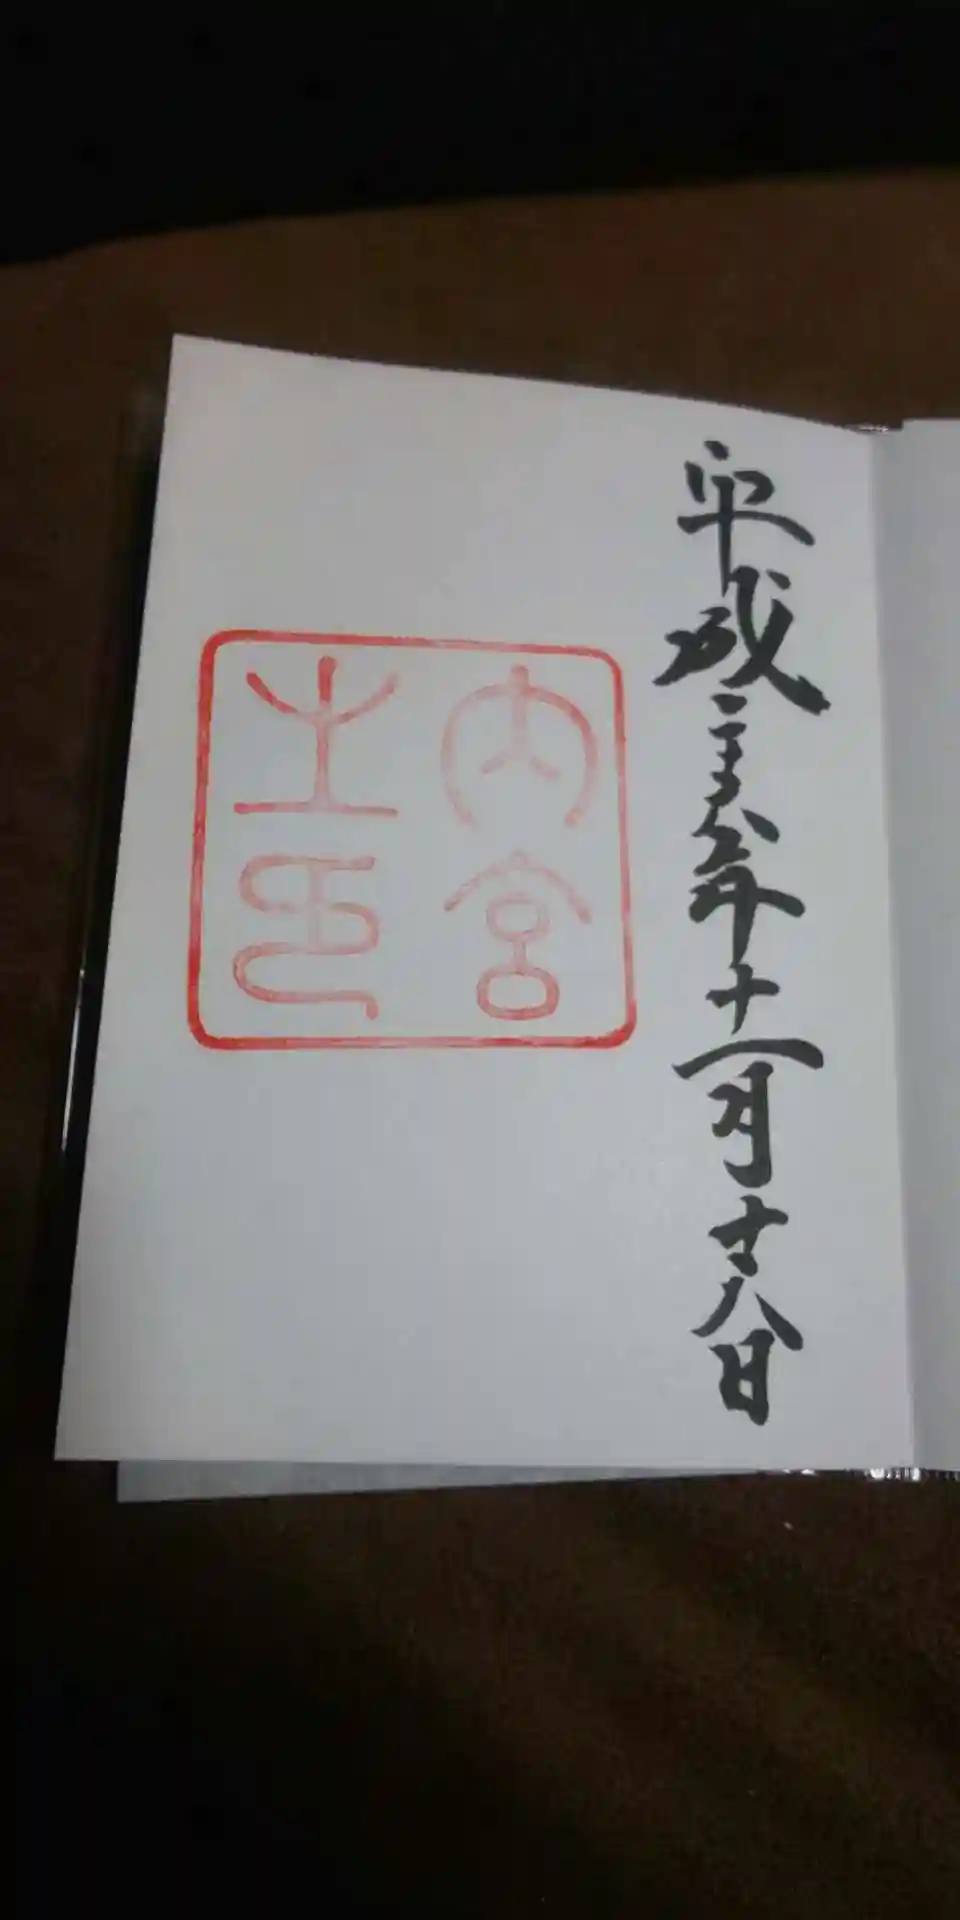 平成二十八年十一月十八日
内宮
之印